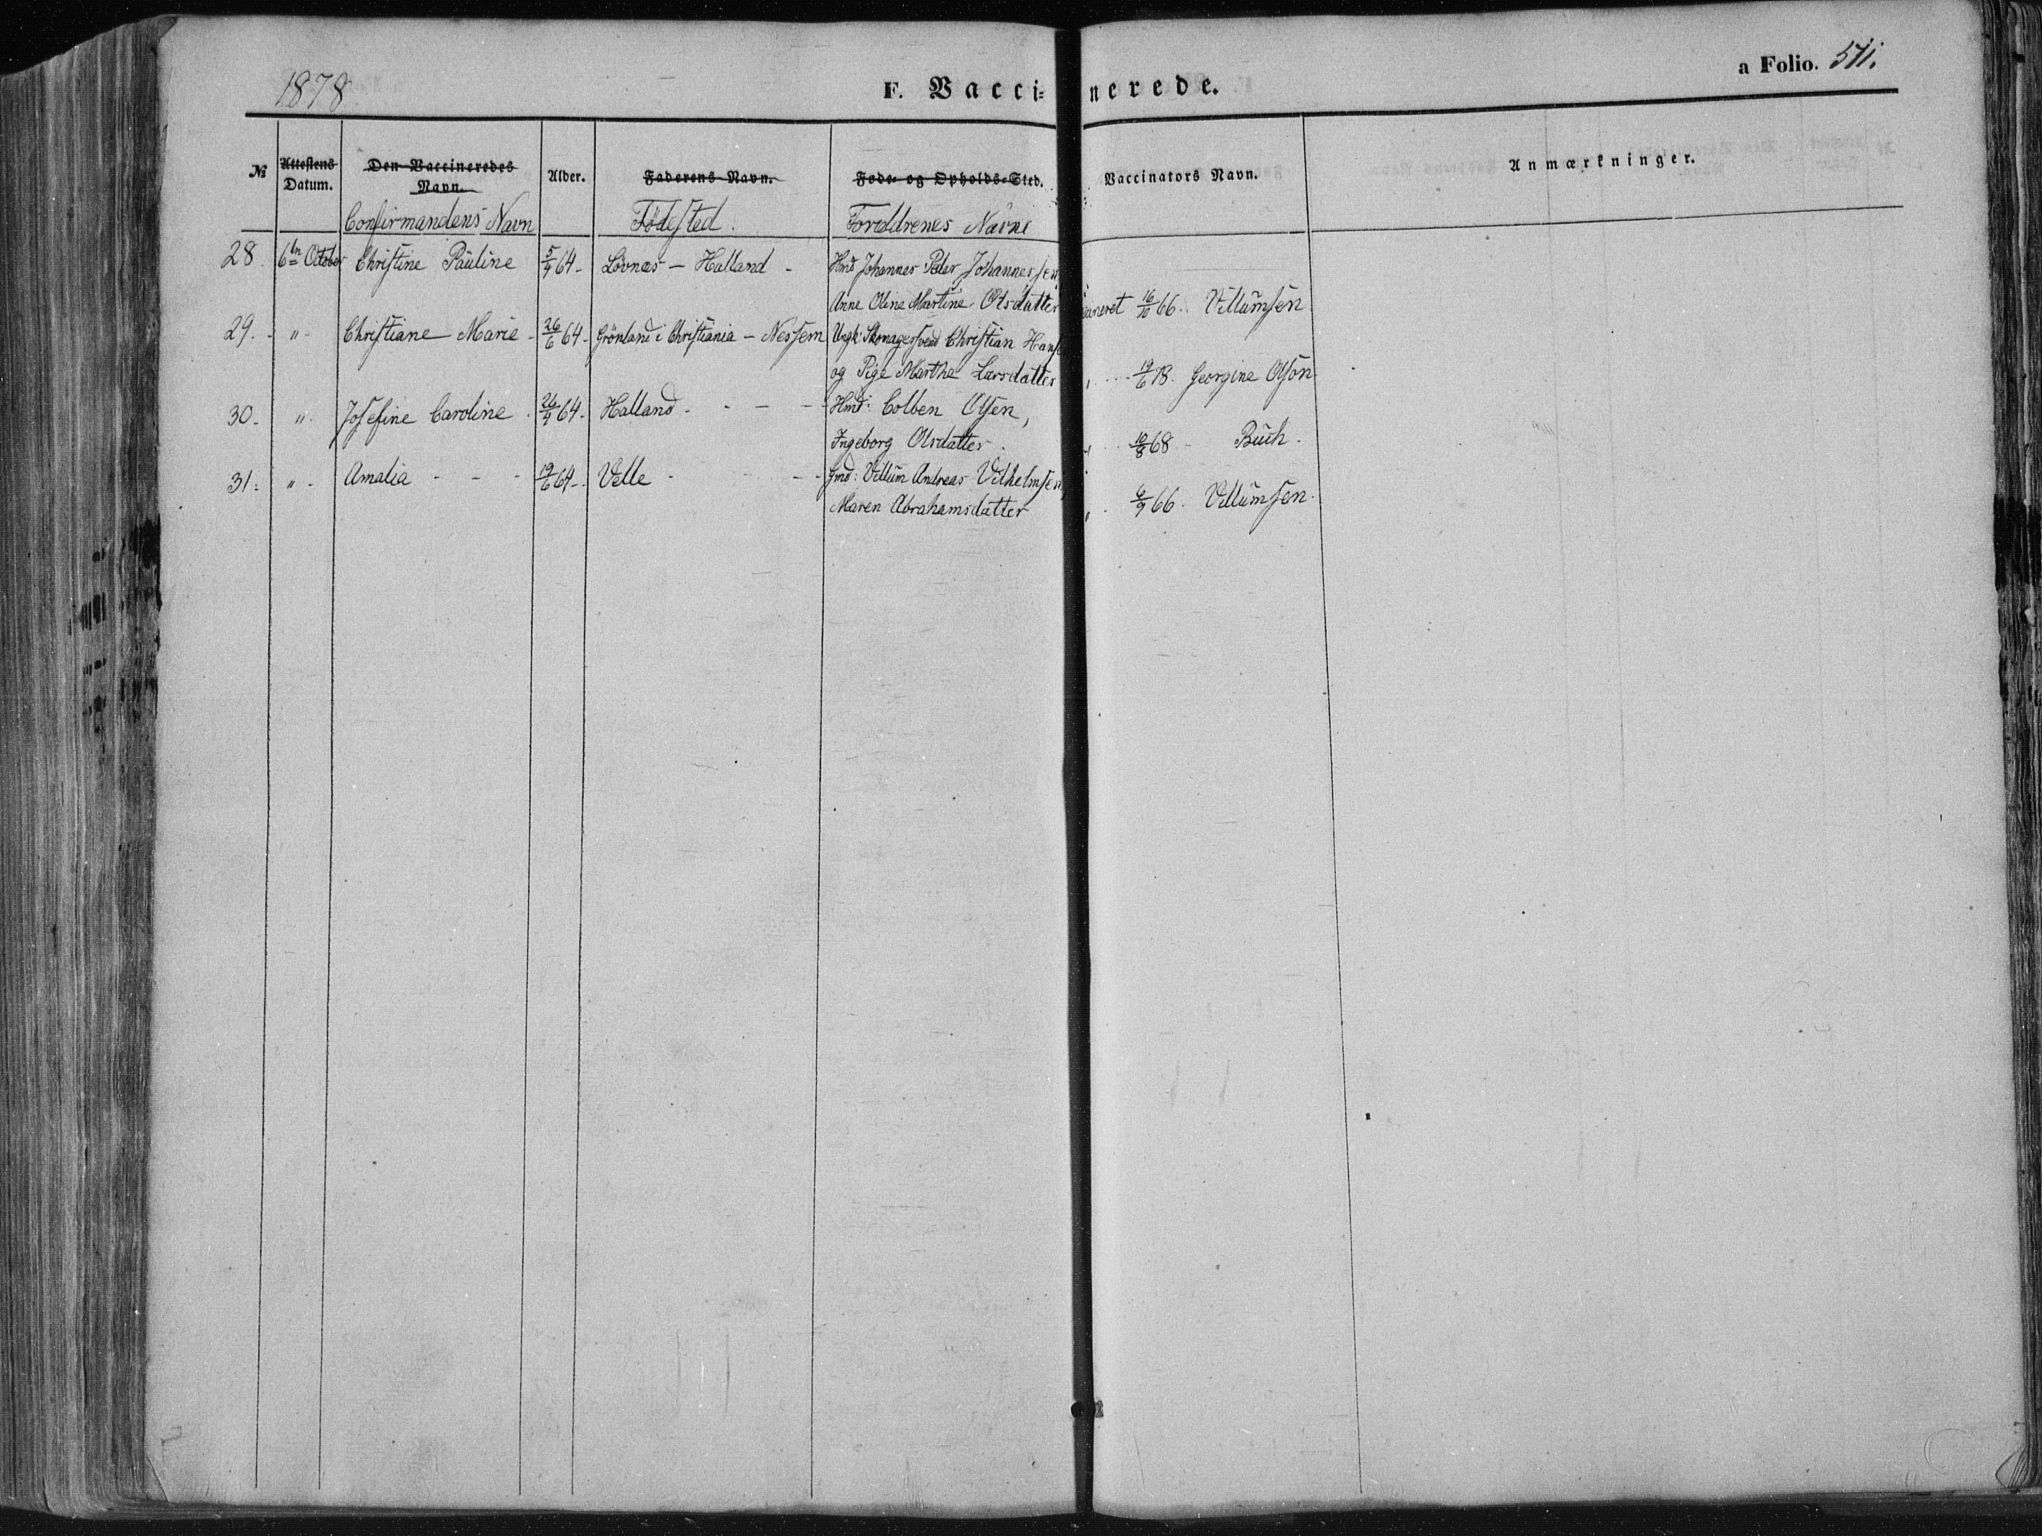 1878
F. Vaccinerede.
a Folio. 511.
№ Attestens Datum. Den Vaccineredes Navn. Alder. Faderens Navn. Føde- og Opholds-Sted. Vaccinators Navn. Anmærkninger.
Confirmandens Navn Fødested. Forældrenes Navne
28. 6te October Christine Pauline 5/9 64 - Lövnæs - Halland - Hmd Johannes Peder Johannessen
Anne Oline Martine Olsdatter 16/10 66. Villumsen
29. " - Christiane Marie - 26/6 64 - Grönland i Christiania - Nessem Ungk: Skomagersvend Christian Hansen
og Pige Marthe Larsdatter " 19/6 78. Georgine Olson
30. " . Josefine Caroline . 26/9 64 - Halland - - - - Hmd: Colben Olsen,
Ingeborg Olsdatter. " 10/8 68 - Buch.
31. " - Amalia - - - 19/6 64 - Velle - - - Gmd: Villum Andreas Vilhelmsen,
Maren Abrahamsdatter " 6/9 66. Villumsen.